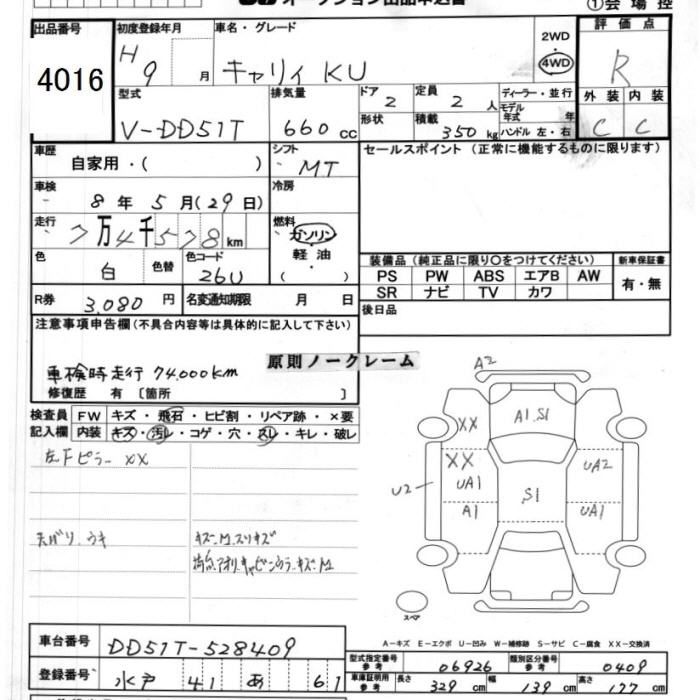 オークション出品申込書 ①会場控
出品番号 初度登録年月 車名・グレード 2WD 評価点
4016 H 9 月 キャリィ KU 4WD R
型式 排気量 ドア 2 定員 2 人 ディーラー・並行 外装 内装
V-DD51T 660 cc 形状 積載 350 kg モデル年式 年 ハンドル 左・右 C C
車歴 自家用・( ) シフト MT セールスポイント (正常に機能するものに限ります)
車検 8 年 5 月(29 日) 冷房
走行 7万4千578 km 燃料 ガソリン
色 白 色替 色コード 26U 軽油 ( ・ ) 装備品 (純正品に限り〇をつけてください) 新車保証書
PS PW ABS エアB AW 有・無
SR ナビ TV カワ
R券 3,080 円 名変通知期限 月 日 後日品
注意事項申告欄(不具合内容等は具体的に記入して下さい)
原則ノークレーム
車検時走行 74,000km
修復歴 有 〔箇所 〕
検査員 FW キズ・飛石・ヒビ割・リペア跡・×要
記入欄 内装 キズ・汚レ・コゲ・穴・スレ・キレ・破レ
左Fピラー XX
天ばり ウキ キズ・凹 スリキズ
A2
XX A1.S1
XX UA1 U2 S1 UA2
A1 UA1
スペア
A-キズ E-エクボ U-凹み W-補修跡 S-サビ C-腐食 XX-交換済
車台番号 DD51T-528409
型式指定番号 参考 06926 類別区分番号 参考 0409
登録番号 水戸 41 あ 61 車庫証明用 参考 長さ 329 cm 幅 139 cm 高さ 177 cm